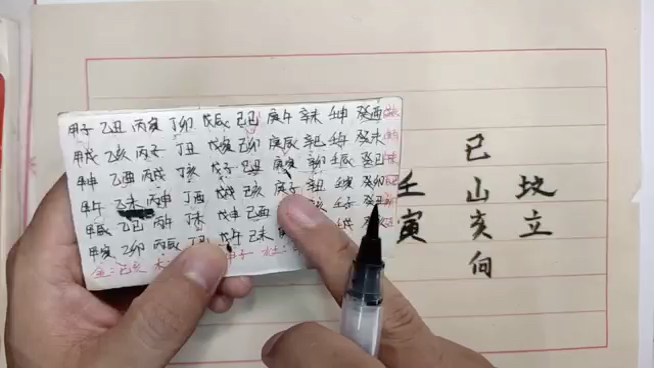 甲子 乙丑 丙寅 丁卯 戊辰 己巳 庚午 辛未 壬申 癸酉
甲戌 乙亥 丙子 丁丑 戊寅 己卯 庚辰 辛巳 壬午 癸未
甲申 乙酉 丙戌 丁亥 戊子 己丑 庚寅 辛卯 壬辰 癸巳
甲午 乙未 丙申 丁酉 戊戌 己亥 庚子 辛丑 壬寅 癸卯
甲辰 乙巳 丙午 丁未 戊申 己酉 亥 壬子 癸丑
甲寅 乙卯 丙辰 丁 戊午 己未
金:己亥 木
坟立
巳山亥向
壬寅